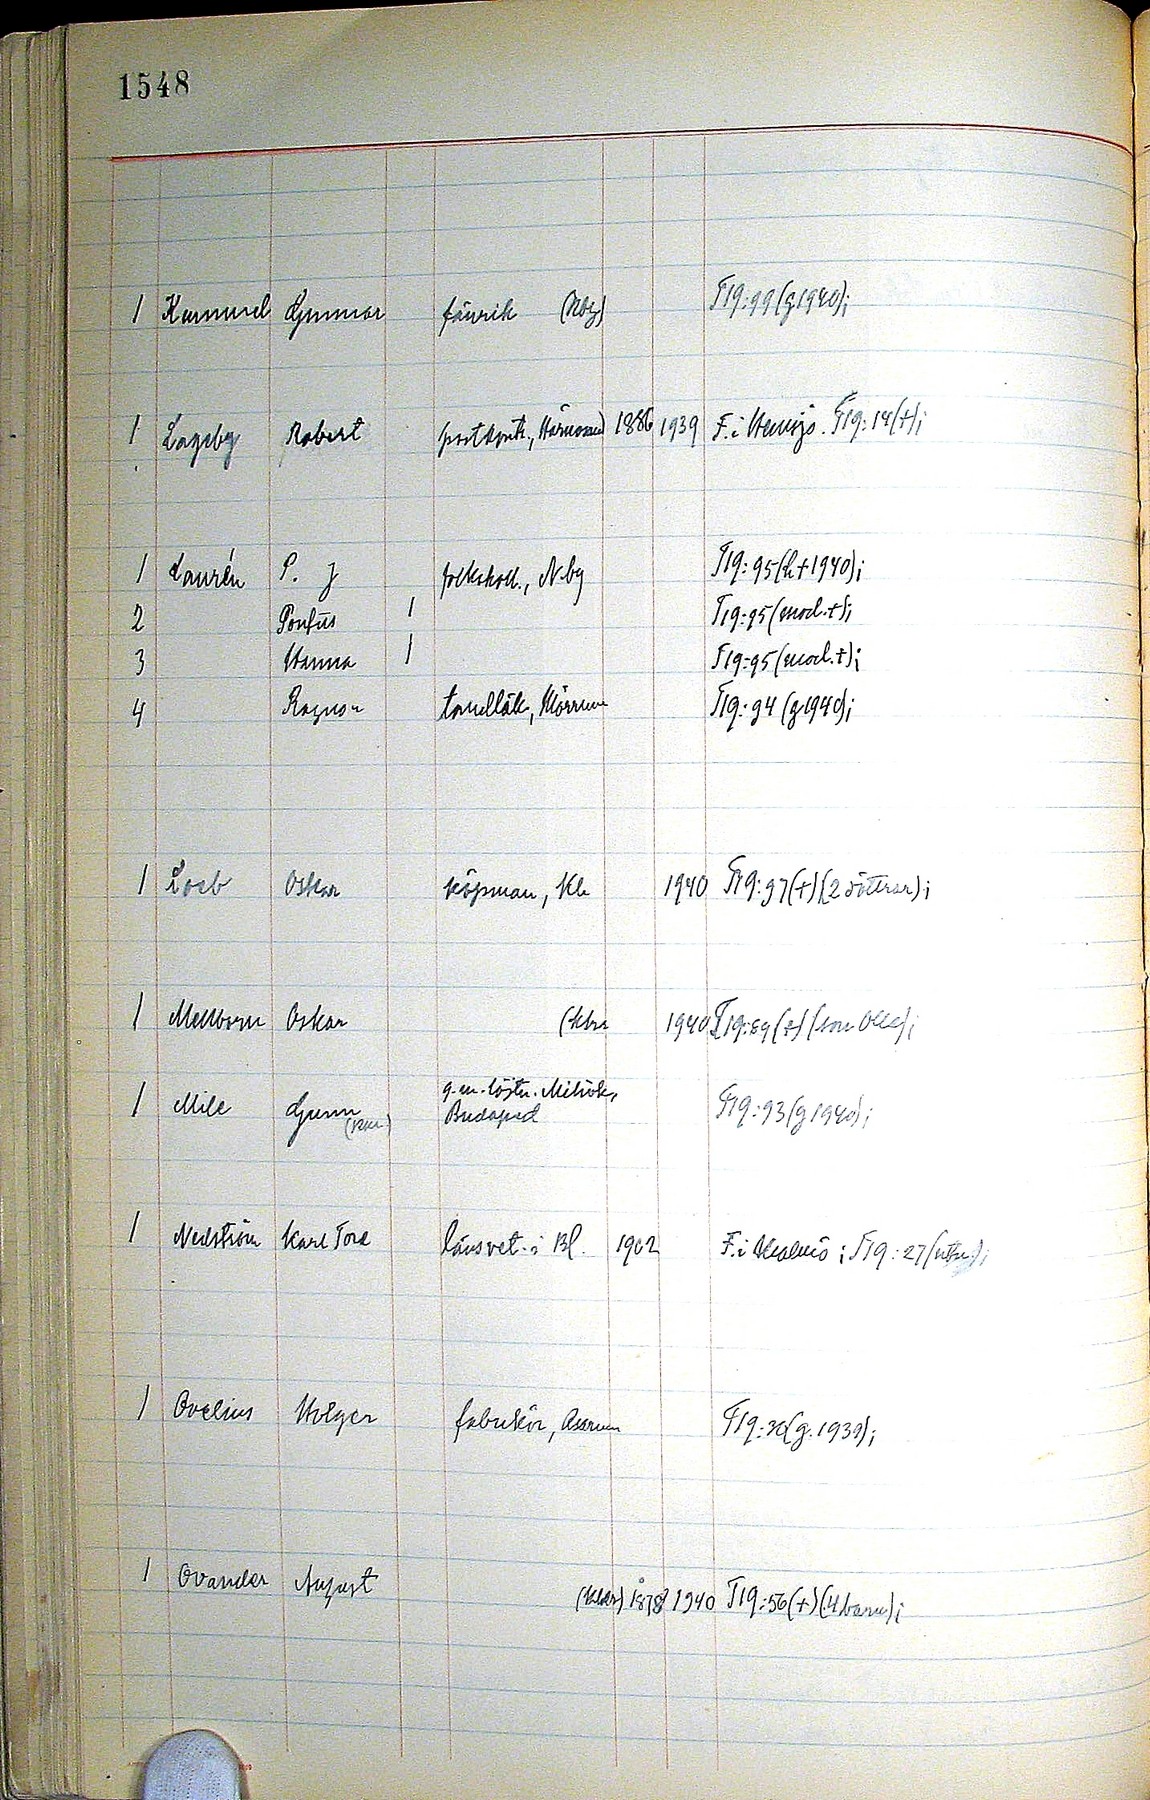 1548
1 Kummel Gunnar fänrik (Nbg) T19:99(g1940);
1 Lageby Robert postkontr., Härnosand 1886 1939 F. i Hemsjö. T19:14(+);
1 Laurén P. J folkskoll., N.by T19:95(h+1940);
2 Pontus 1 T19:95(mod.+);
3 Hanna 1 T19:95(mod.+);
4 Ragnar tandläk, Mörrum T19:94(g1940);
1 Loeb Oskar köpman, Kla 1940 T19:97(+)(2 döttrar);
1 Mellborn Oskar 1940 T19:89(+)(son Olle);
1 Mile Gunn g.m. löjtn.
Budapest T19:93(g1940);
1 Nedström Karl Tore länsvet. i Bl. 1902 F. i ; T19:27
1 Ovelius Holger fabrikör, T19:30(g.1939);
1 Ovander August 1878 1940 T19:56(+)(4 barn);